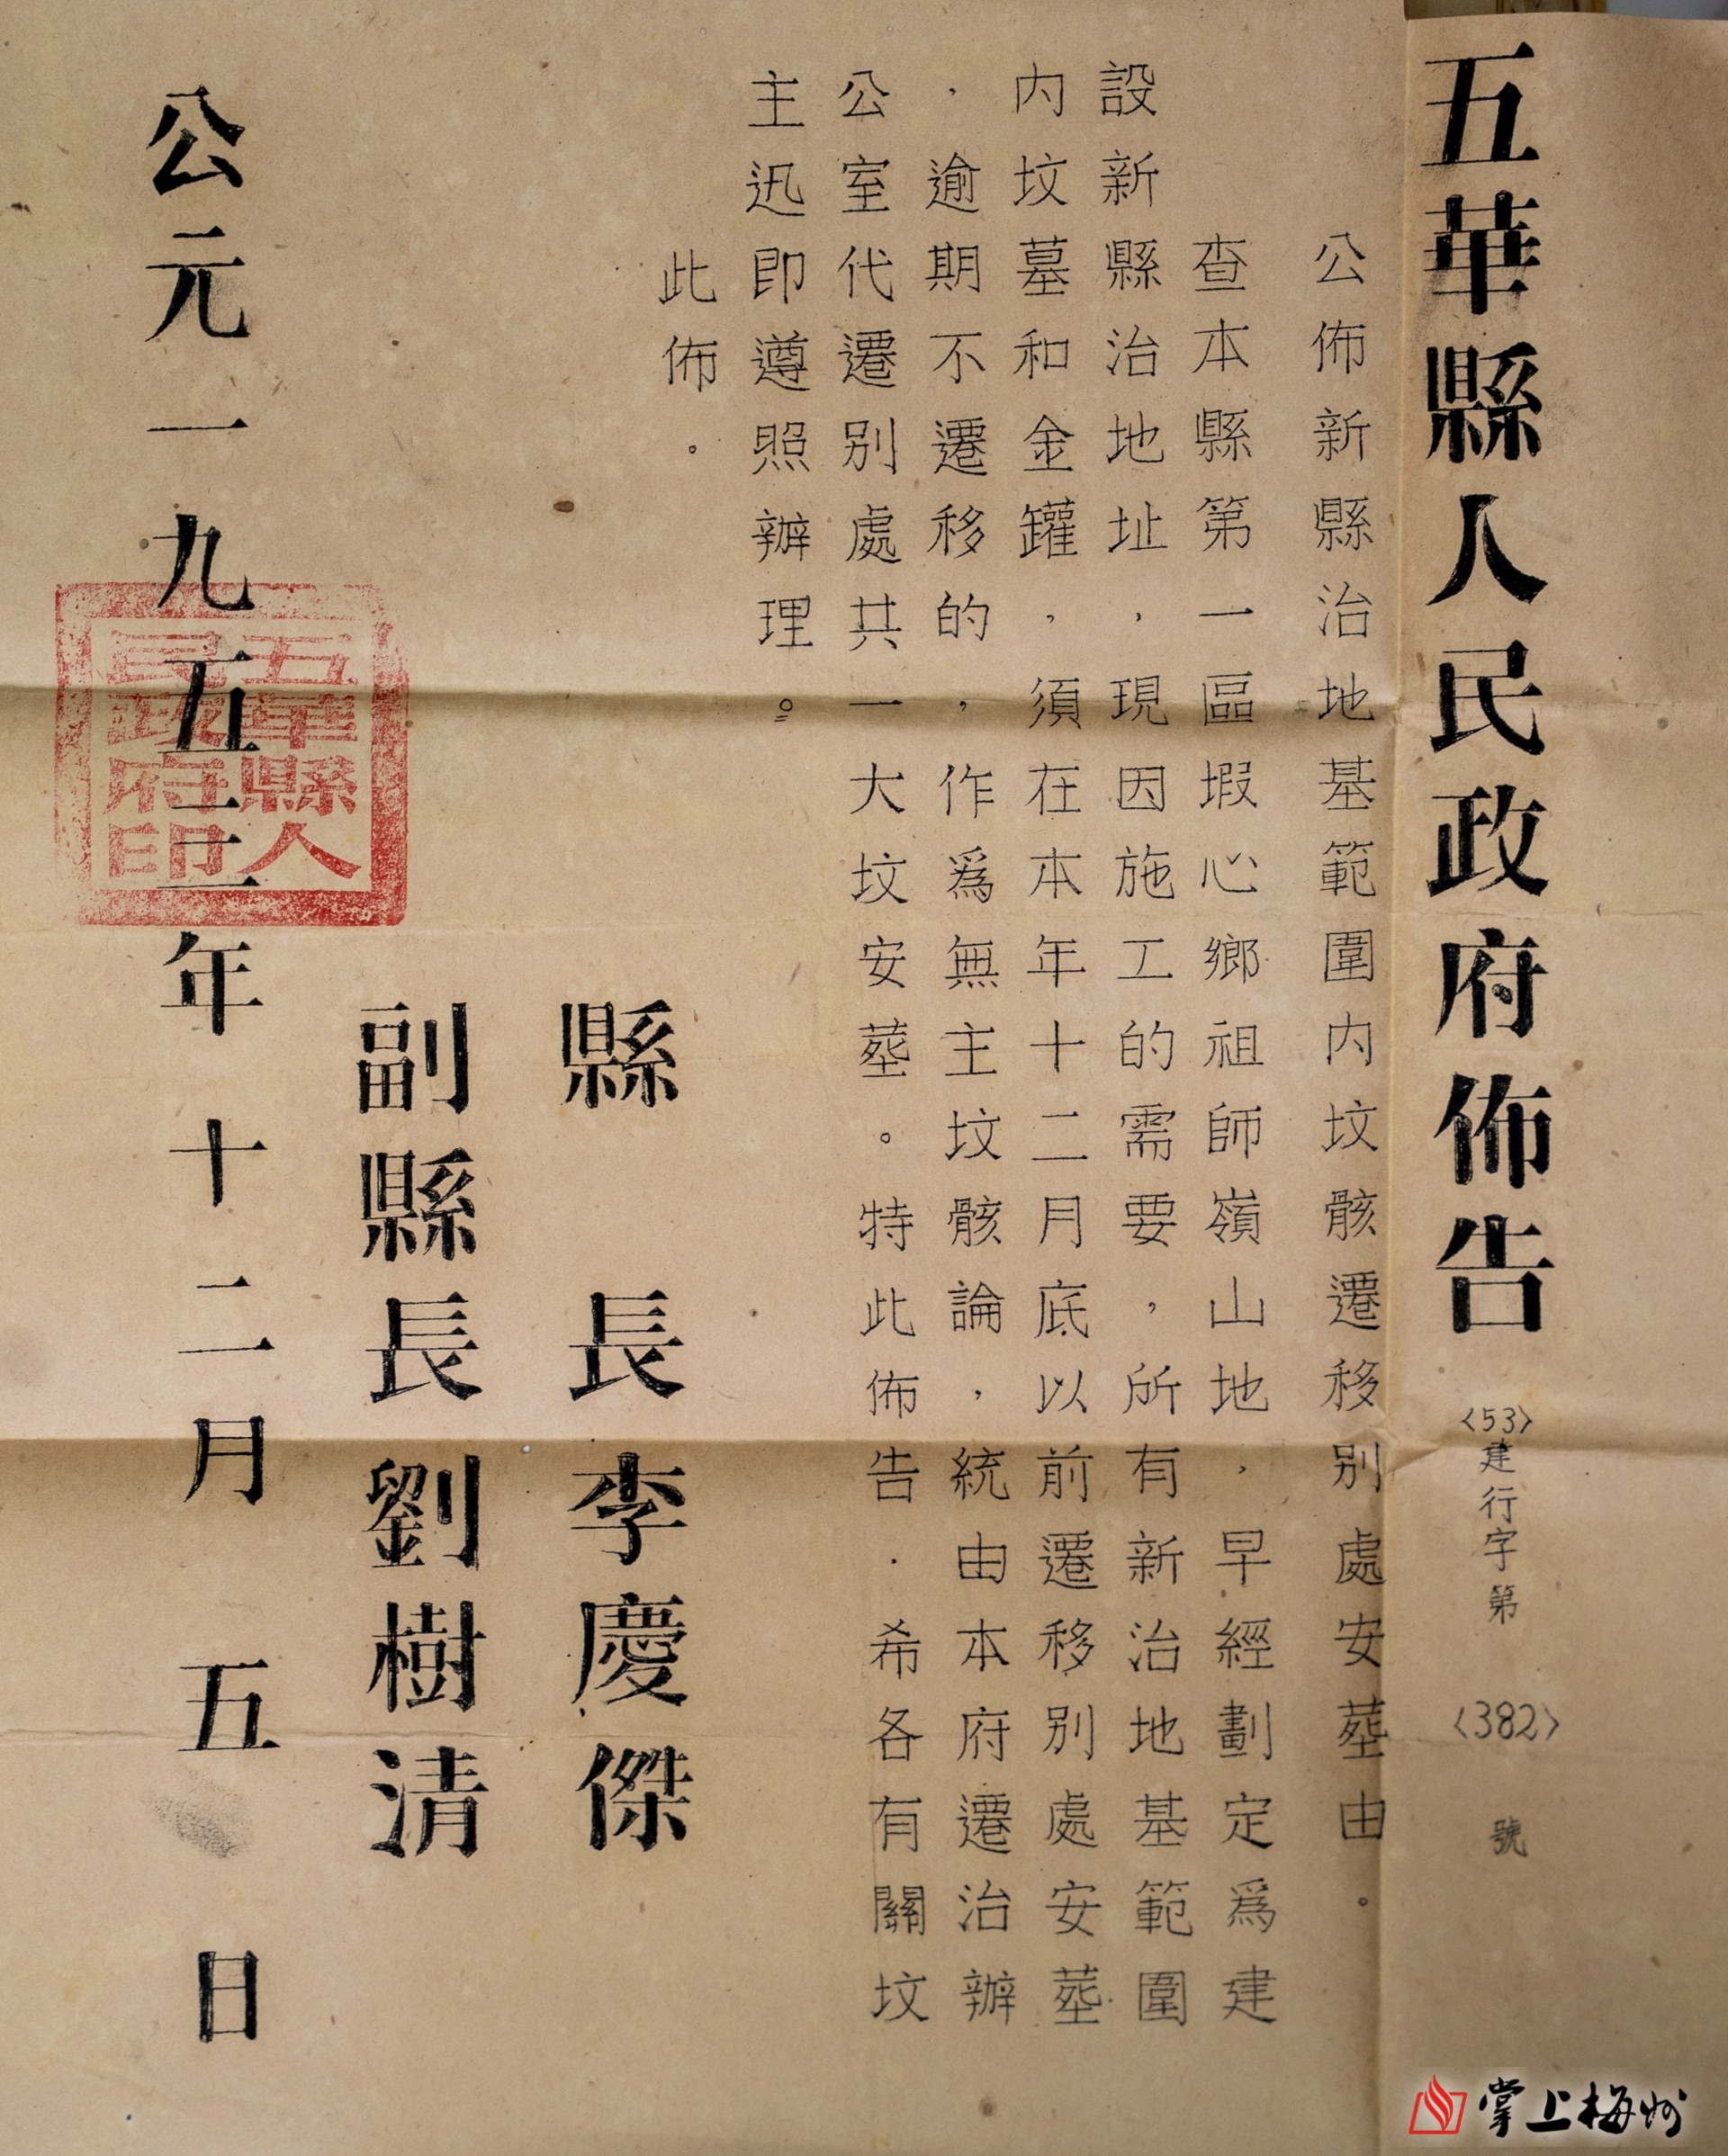 五華縣人民政府佈告
〈53〉建行字第〈382〉號
公佈新縣治地基範圍内坟骸遷移別處安葬由。
查本縣第一區塅心鄉祖師嶺山地，早經劃定爲建
設新縣治地址，現因施工的需要，所有新治地基範圍
内坟墓和金罐，須在本年十二月底以前遷移別處安葬
，逾期不遷移的，作爲無主坟骸論，統由本府遷治辦
公室代遷別處共一大坟安葬。特此佈告．希各有關坟
主迅即遵照辦理。
此佈。
縣長李慶傑
副縣長劉樹清
公元一九五三年十二月五日
五華縣人
民政府印
掌上梅州